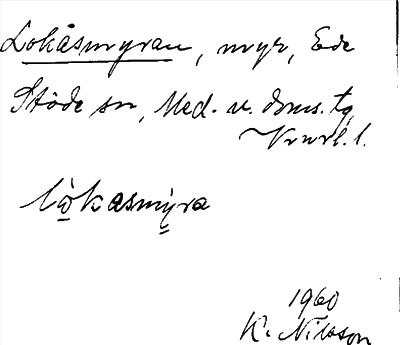 Lokåsmyran, myr, Ede
Stöde sn, Med. v. doms. tg,
Vrnrl. l.
lò̤kasmỳ̳ra
1960
K. Nilsson